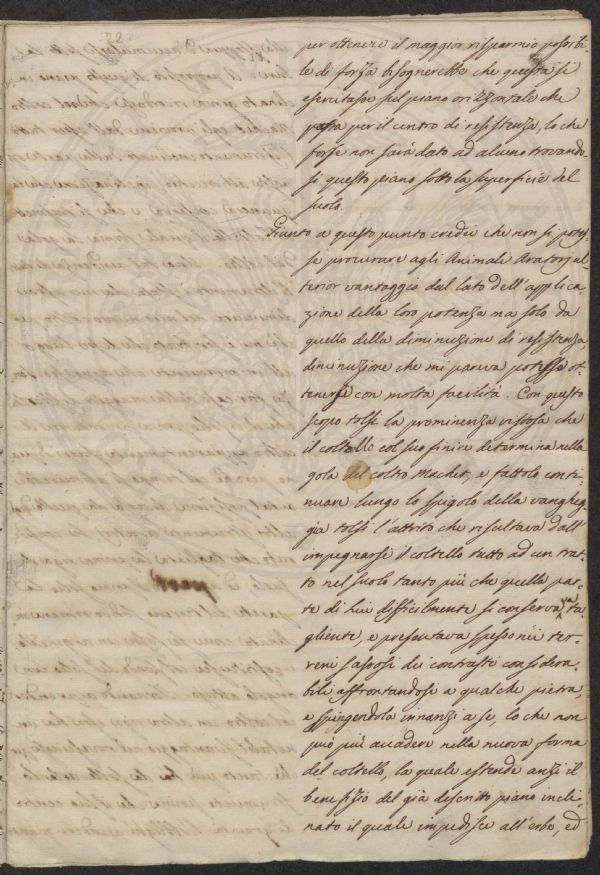 per ottenere il maggior risparmio possibi-
le di forza bisognerebbe che questa si
esercitasse sul piano orizzontale che
passa per il centro di resistenza, lo che
forse non sarà dato ad alcuno trovando-
si questo piano sotto la superficie del
suolo.
Giunto a questo punto credei che non si potes-
se procurare agli Animale Aratorj ul-
terior vantaggio dal lato dell'applica-
zione della loro potenza ma solo da
quello della diminuzione di resistenza,
diminuzione che mi pareva potesse ot-
tenersi con molta facilità. Con questo
scopo tolsi la prominenza vistosa che
il coltello col suo finire determina nella
gola del coltro Machet, e fattolo conti-
nuare lungo lo spigolo della vangheg-
gia tolsi l'attrito che risultava dall'
impegnarsi il coltello tutto ad un trat-
to nel suolo tanto più che quella par-
te di lui difficilmente si conservava ta-
gliente, e presentava spesso nei ter-
reni sassosi dei contrasti considera-
bili affrontandosi a qualche pietra,
e spingendola innanzi a se, lo che non
può più accadere nella nuova forma
del coltello, la quale estende anzi il
benefizio del già descritto piano incli-
nato il quale impedisce all'erbe, ed